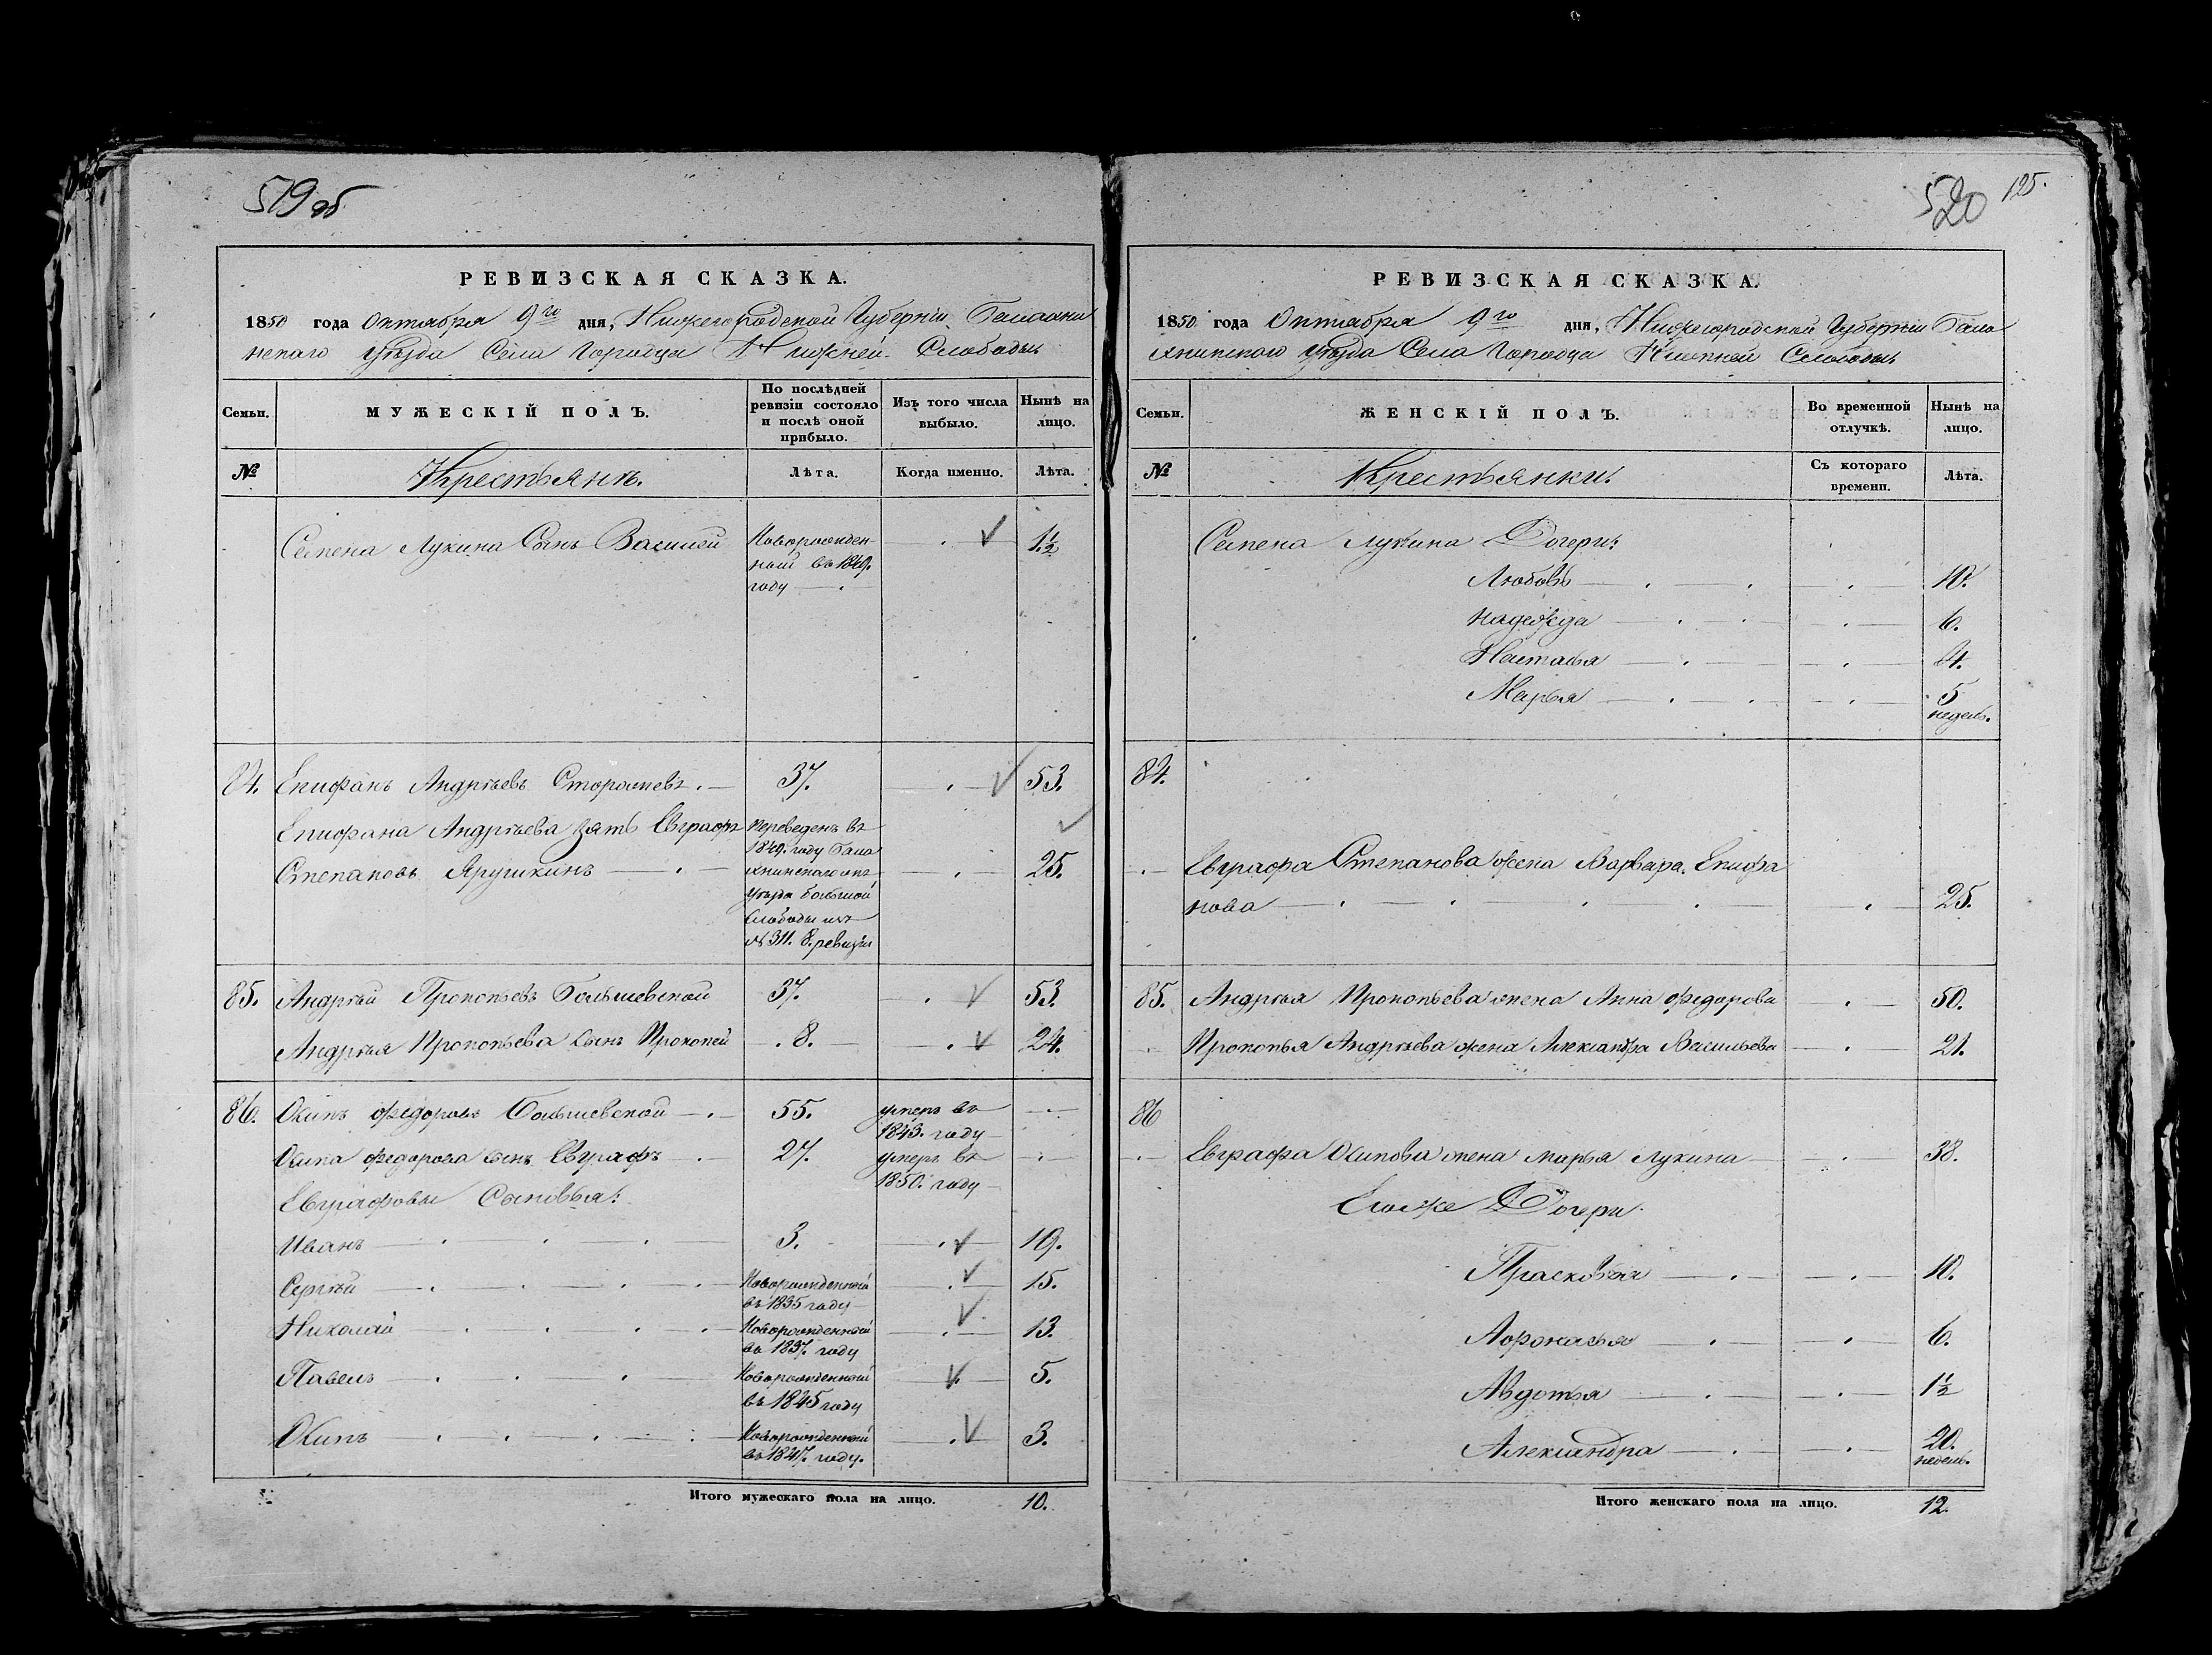 519 об
РЕВИЗСКАЯ СКАЗКА.
1850 года Октября 9го дня, Нижегородской Губерніи Балахни
нскаго Уѣзда Села Городца Нижней Слободы
Семьи. МУЖЕСКІЙ ПОЛЪ. По послѣдней ревизіи состояло и послѣ оной прибыло. Изъ того числа выбыло. Нынѣ на лицо.
№ Крестьянъ. Лѣта. Когда именно. Лѣта.
Семена Лукина Сынъ Василей Новорожден- 1½
ный въ 1849.
году
84. Епифанъ Андрѣевъ Сторожевъ 37. 53.
Епифана Андрѣева зять Евграфъ переведенъ въ
1849. году Бала
Степановъ Ярушкинъ хнинскаго же 25.
Уѣзда большой
Слободы изъ
№ 311. 8. ревизіи
85. Андрѣй Прокопьевъ Большевской 37. 53.
Андрѣя Прокопьева сынъ Прокопей 8. 24.
86. Осипъ Федоровъ Большевской 55. умеръ въ
1843. году
Осипа Федорова сынъ Евграфъ 27. умеръ въ
1850. году
Евграфовы Сыновья:
Иванъ 3. 19.
Сергѣй Новорожденный 15.
въ 1835 году
Николай Новорожденный 13.
въ 1837. году
Павелъ Новорожденный 5.
въ 1845 году
Осипъ Новорожденный 3.
въ 1847. году.
Итого мужескаго пола на лицо. 10.
520 125.
РЕВИЗСКАЯ СКАЗКА.
1850 года Октября 9го дня, Нижегородской Губерніи Бала
хнинскаго Уѣзда Села Городца Нижней Слободы
Семьи. ЖЕНСКІЙ ПОЛЪ. Во временной отлучкѣ. Нынѣ на лицо.
№ Крестьянки. Съ котораго времени. Лѣта.
Семена Лукина Дочери:
Любовь 10.
Надежда 6.
Настасья 4.
Марья 5
недель.
84.
Евграфа Степанова жена Варвара Епифа
нова 25.
85. Андрѣя Прокопьева жена Анна Федорова 50.
Прокопья Андрѣева жена Александра Васильева 21.
86
Евграфа Осипова жена Марья Лукина 38.
Егоже Дочери
Прасковья 10.
Афонасья 6.
Авдотья 1½
Александра 20.
недель.
Итого женскаго пола на лицо. 12.